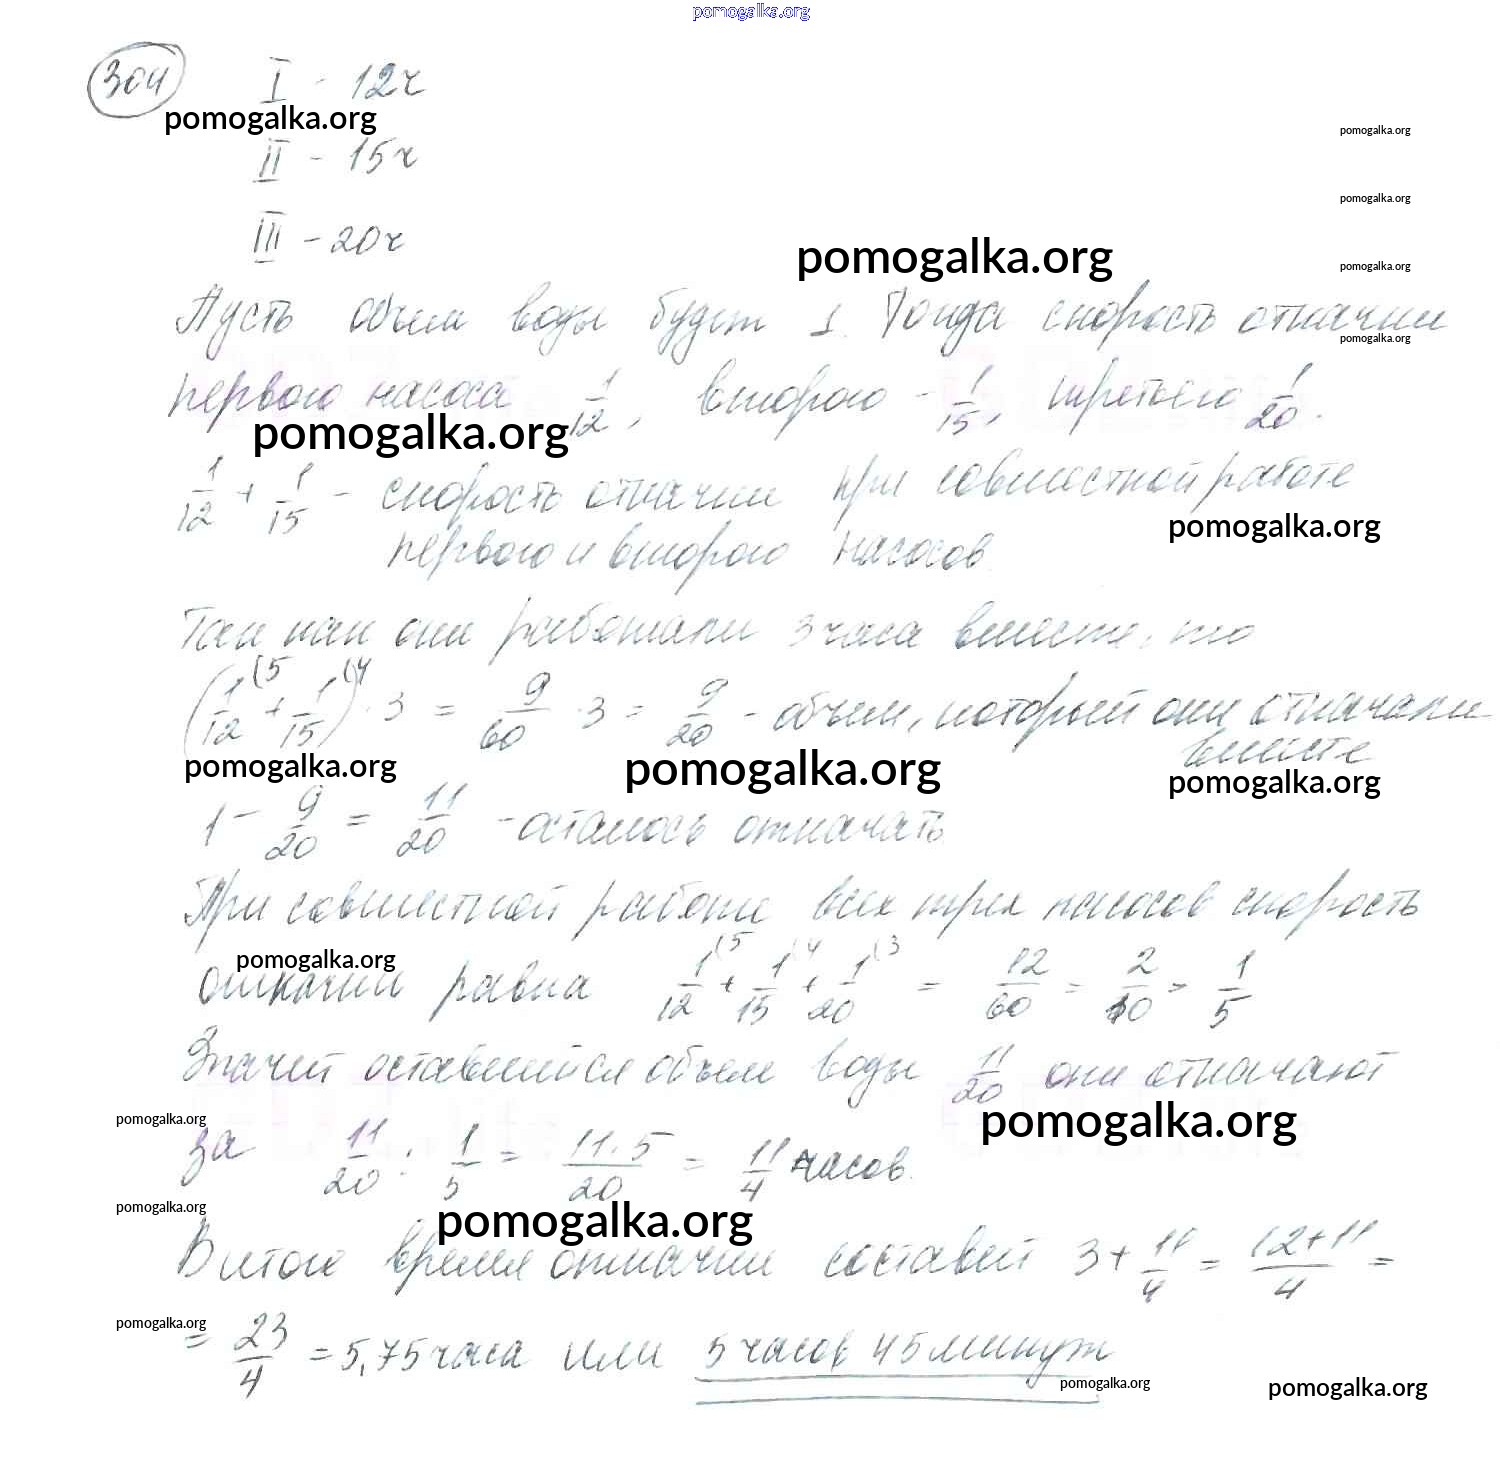 pomogalka.org
304 I - 12ч
pomogalka.org
pomogalka.org
II - 15ч
pomogalka.org
III - 20ч
pomogalka.org
pomogalka.org
Пусть объем воды будет 1. Тогда скорость откачки
pomogalka.org
первого насоса 1/12, второго - 1/15, третьего 1/20.
pomogalka.org
1/12 + 1/15 - скорость откачки при совместной работе
pomogalka.org
первого и второго насосов.
Так как они работали 3 часа вместе, то
(1/12 (5 + 1/15 (4) · 3 = 9/60 · 3 = 9/20 - объем, который они откачали
вместе
pomogalka.org pomogalka.org pomogalka.org
1 - 9/20 = 11/20 - осталось откачать
При совместной работе всех трех насосов скорость
pomogalka.org
откачки равна 1/12 (5 + 1/15 (4 + 1/20 (3 = 12/60 = 2/10 = 1/5
Значит оставшийся объем воды 11/20 они откачают
pomogalka.org pomogalka.org
за 11/20 : 1/5 = 11·5/20 = 11/4 часов.
pomogalka.org pomogalka.org
В итоге время откачки составит 3 + 11/4 = 12+11/4 =
pomogalka.org
= 23/4 = 5,75 часа или 5 часов 45 минут
pomogalka.org pomogalka.org